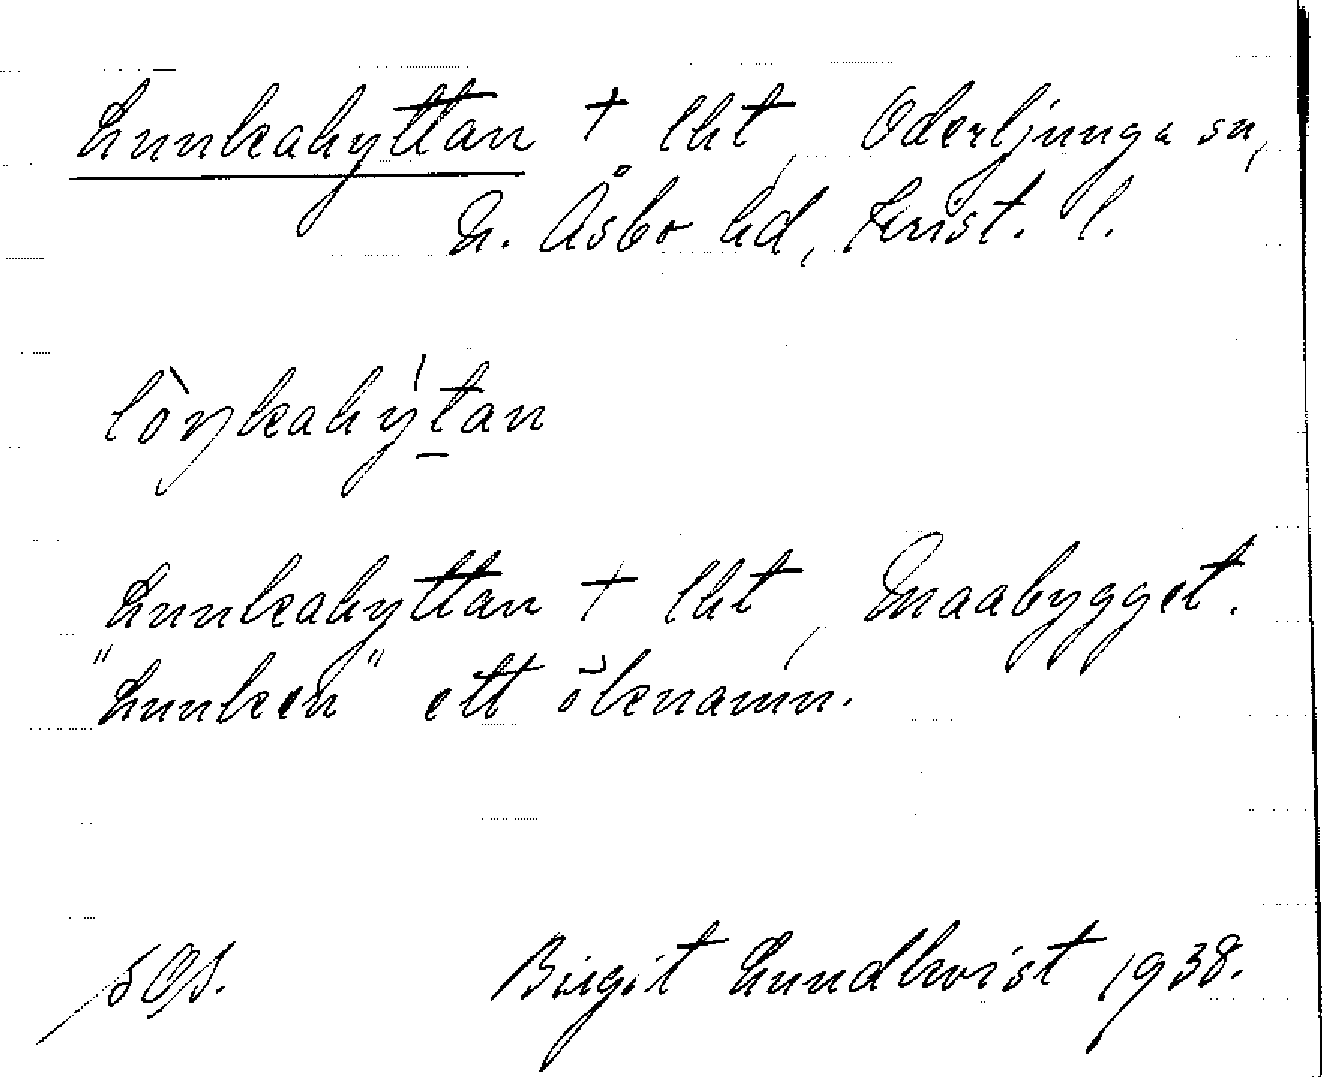 Lunkahyttan † lht, Oderljunga sn,
N. Åsbo hd, Krist. l.
lòŋkahýtan
Lunkahyttan † lht, Maabygget.
"Lunken" ett öknamn.
Birgit Lundkvist 1938.